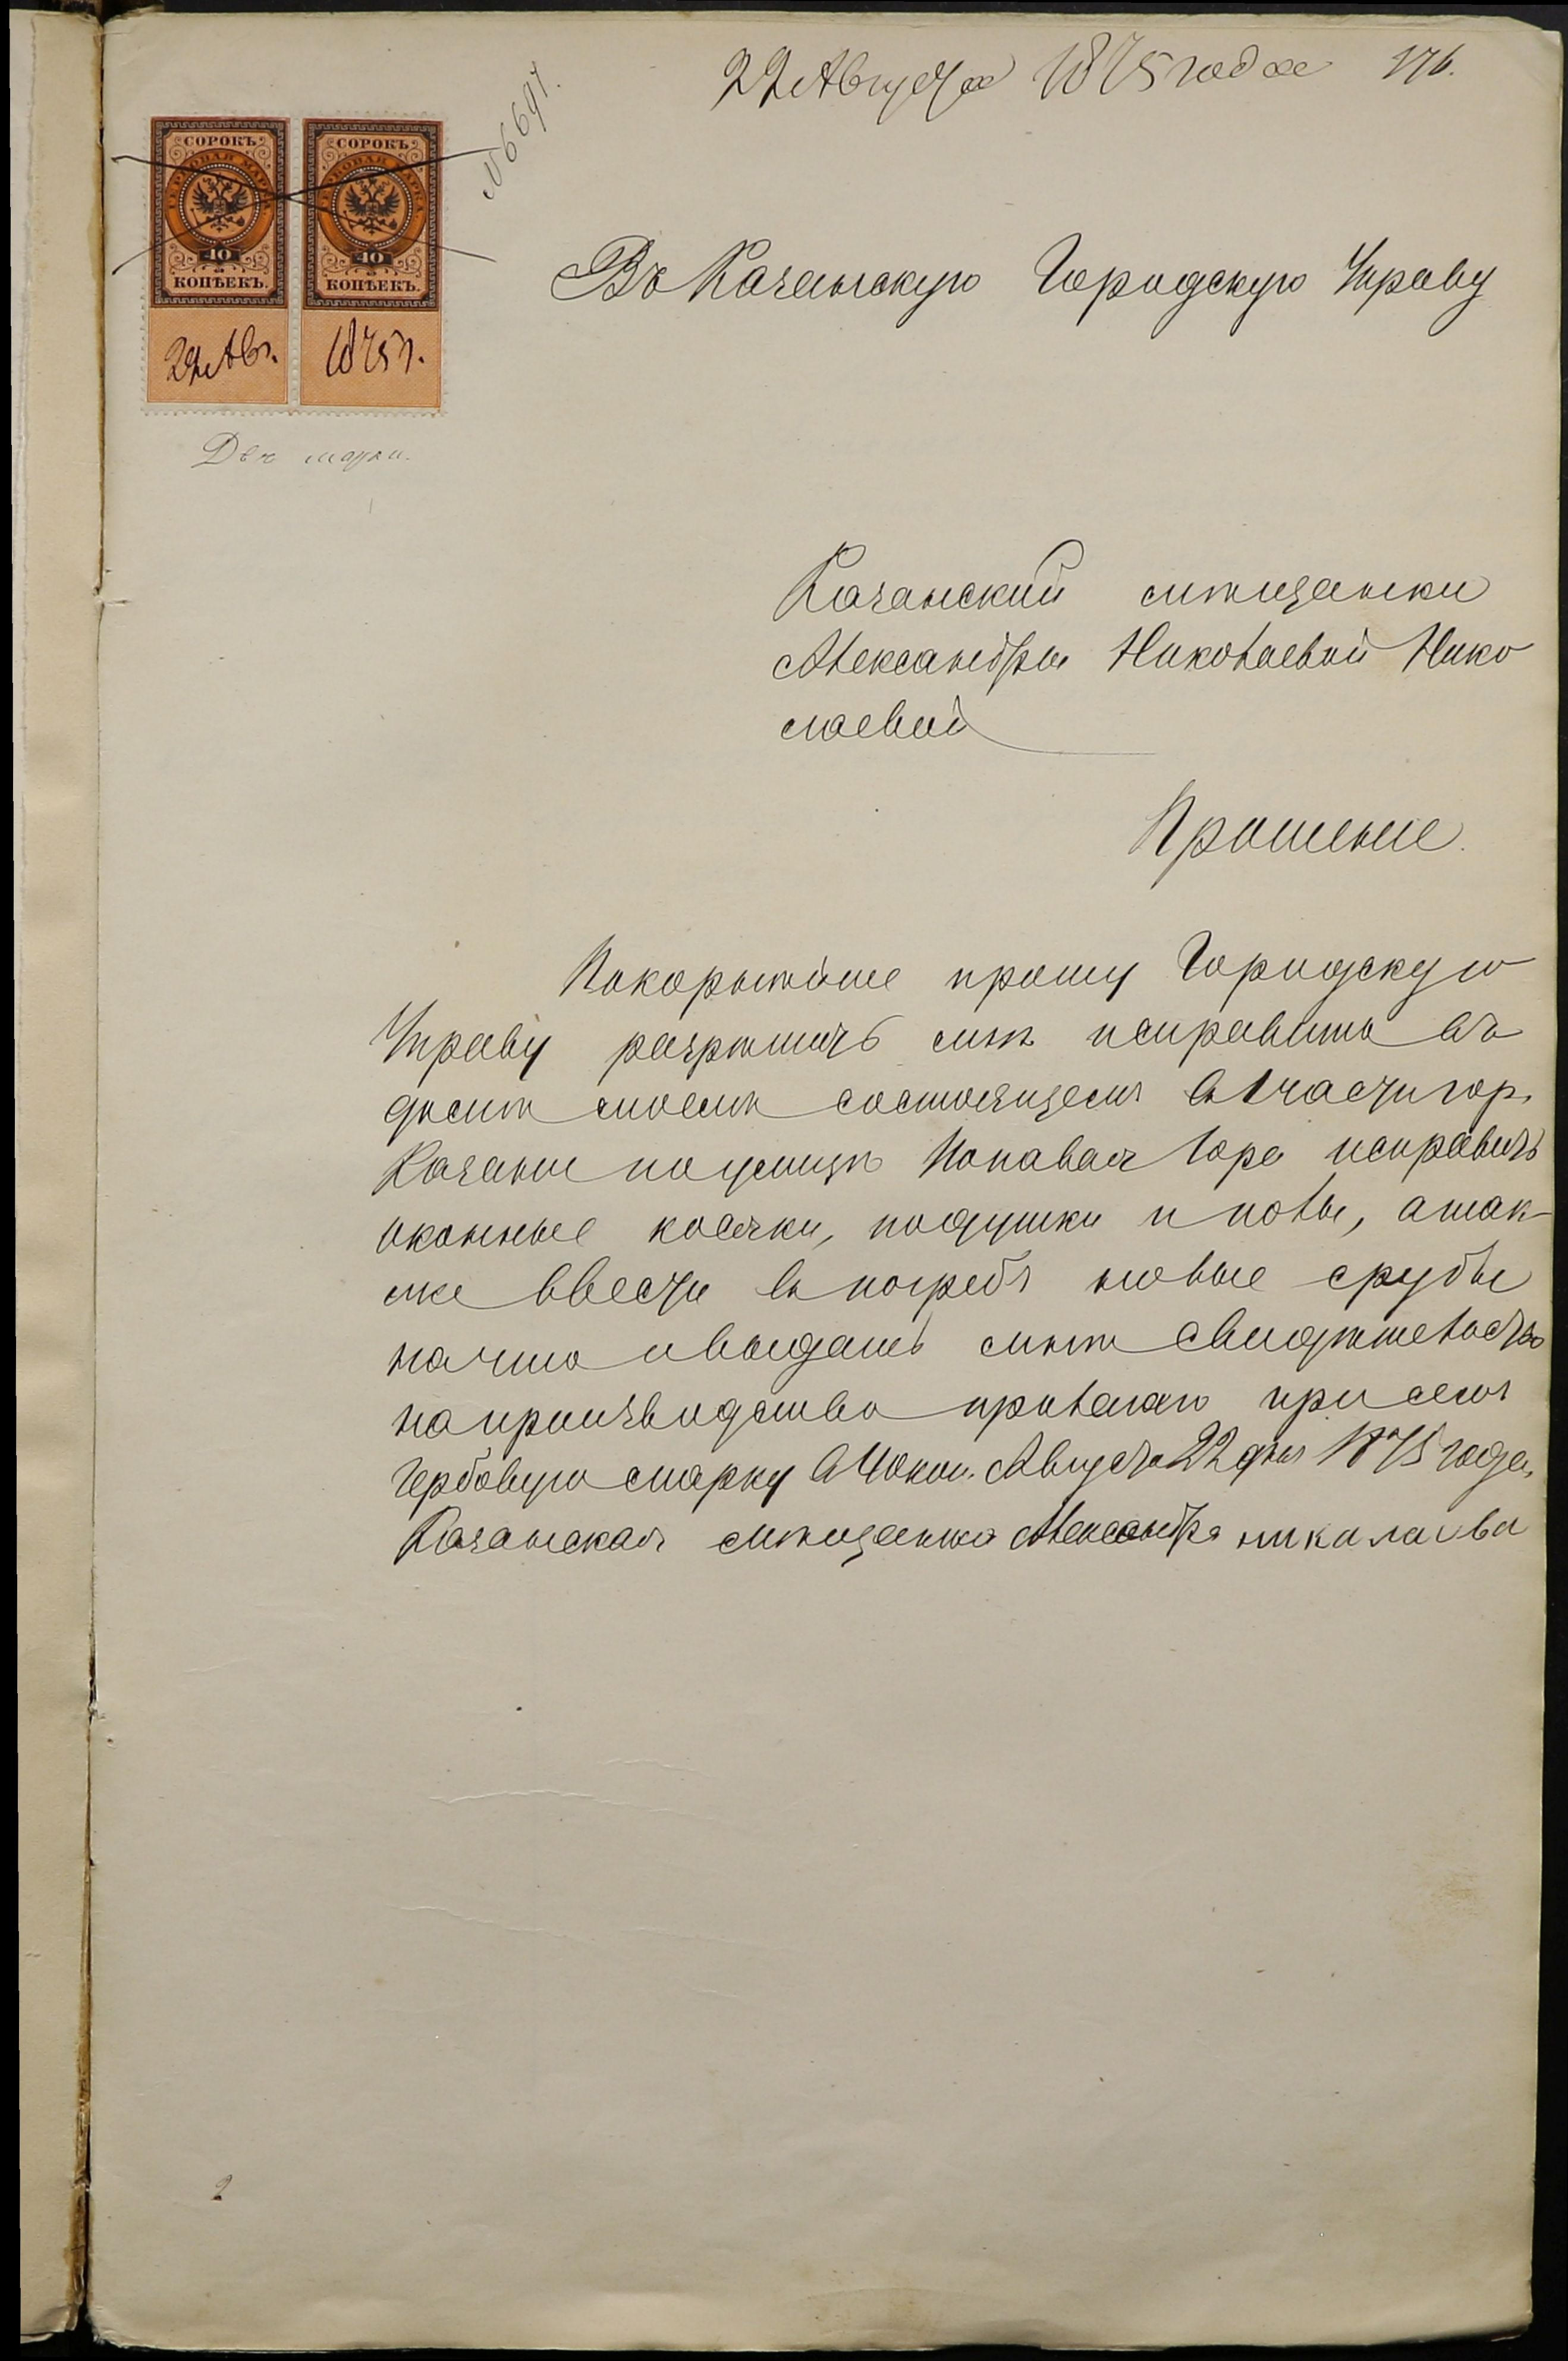 22 Августа 1875 года 176.
№ 6697.
СОРОКЪ СОРОКЪ
ГЕРБОВАЯ МАРКА ГЕРБОВАЯ МАРКА
40 40
КОПѢЕКЪ. КОПѢЕКЪ.
22 Авг. 1875 г.
Две марки.
Въ Казанскую Городскую Управу
Казанский мѣщанки
Александры Николаевой Нико
лаевой
Прошение.
Покорнѣйше прошу Городскую
Управу разрѣшить мнѣ исправить въ
домѣ моемъ состоящемъ в 1 части гор.
Казани по улицѣ Попавая Гора исправить
оконные косяки, подушки и полы, а так-
же ввести в погребъ новые срубы
на что и выдать мнѣ свидѣтельство
на производство прилагаю при семъ
Гербовую марку в 40 коп. Августа 22 дня 1875 года,
Казанская мѣщанка Александра николаива
2